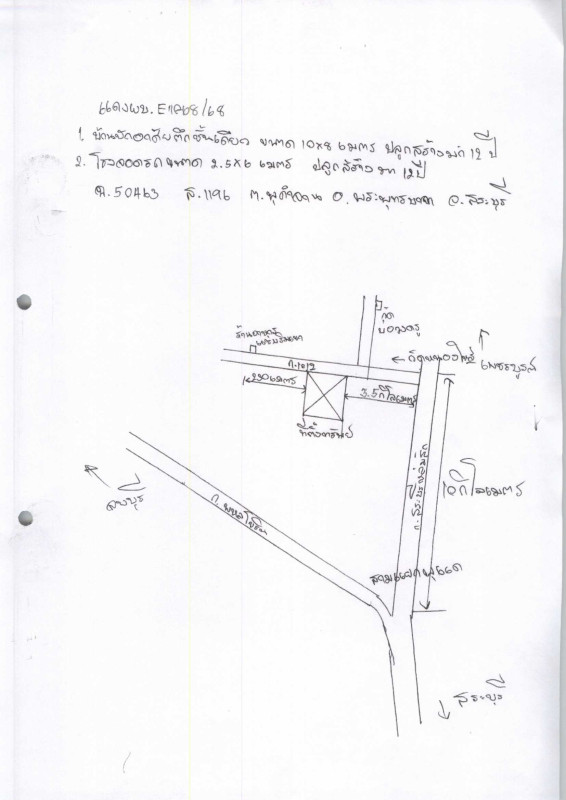 แดงผบ. E1968/68
1. บ้านพักอาศัยตึกชั้นเดียว ขนาด 10x8 เมตร ปลูกสร้างมา 12 ปี
2. โรงจอดรถ ขนาด 2.5x6 เมตร ปลูกสร้าง มา 12 ปี
ฉ.50463 ล.1196 อ. พระพุทธบาท จ. สระบุรี
วัด
ร้านอาหาร
เพชรบูรณ์
ถ.1012
230 เมตร
3.5 กิโลเมตร
ที่ตั้งทรัพย์
10 กิโลเมตร
ลพบุรี
ถ. พหลโยธิน
สามแยกพุแค
สระบุรี